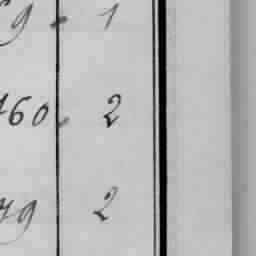 9. 1
460. 2
79 2